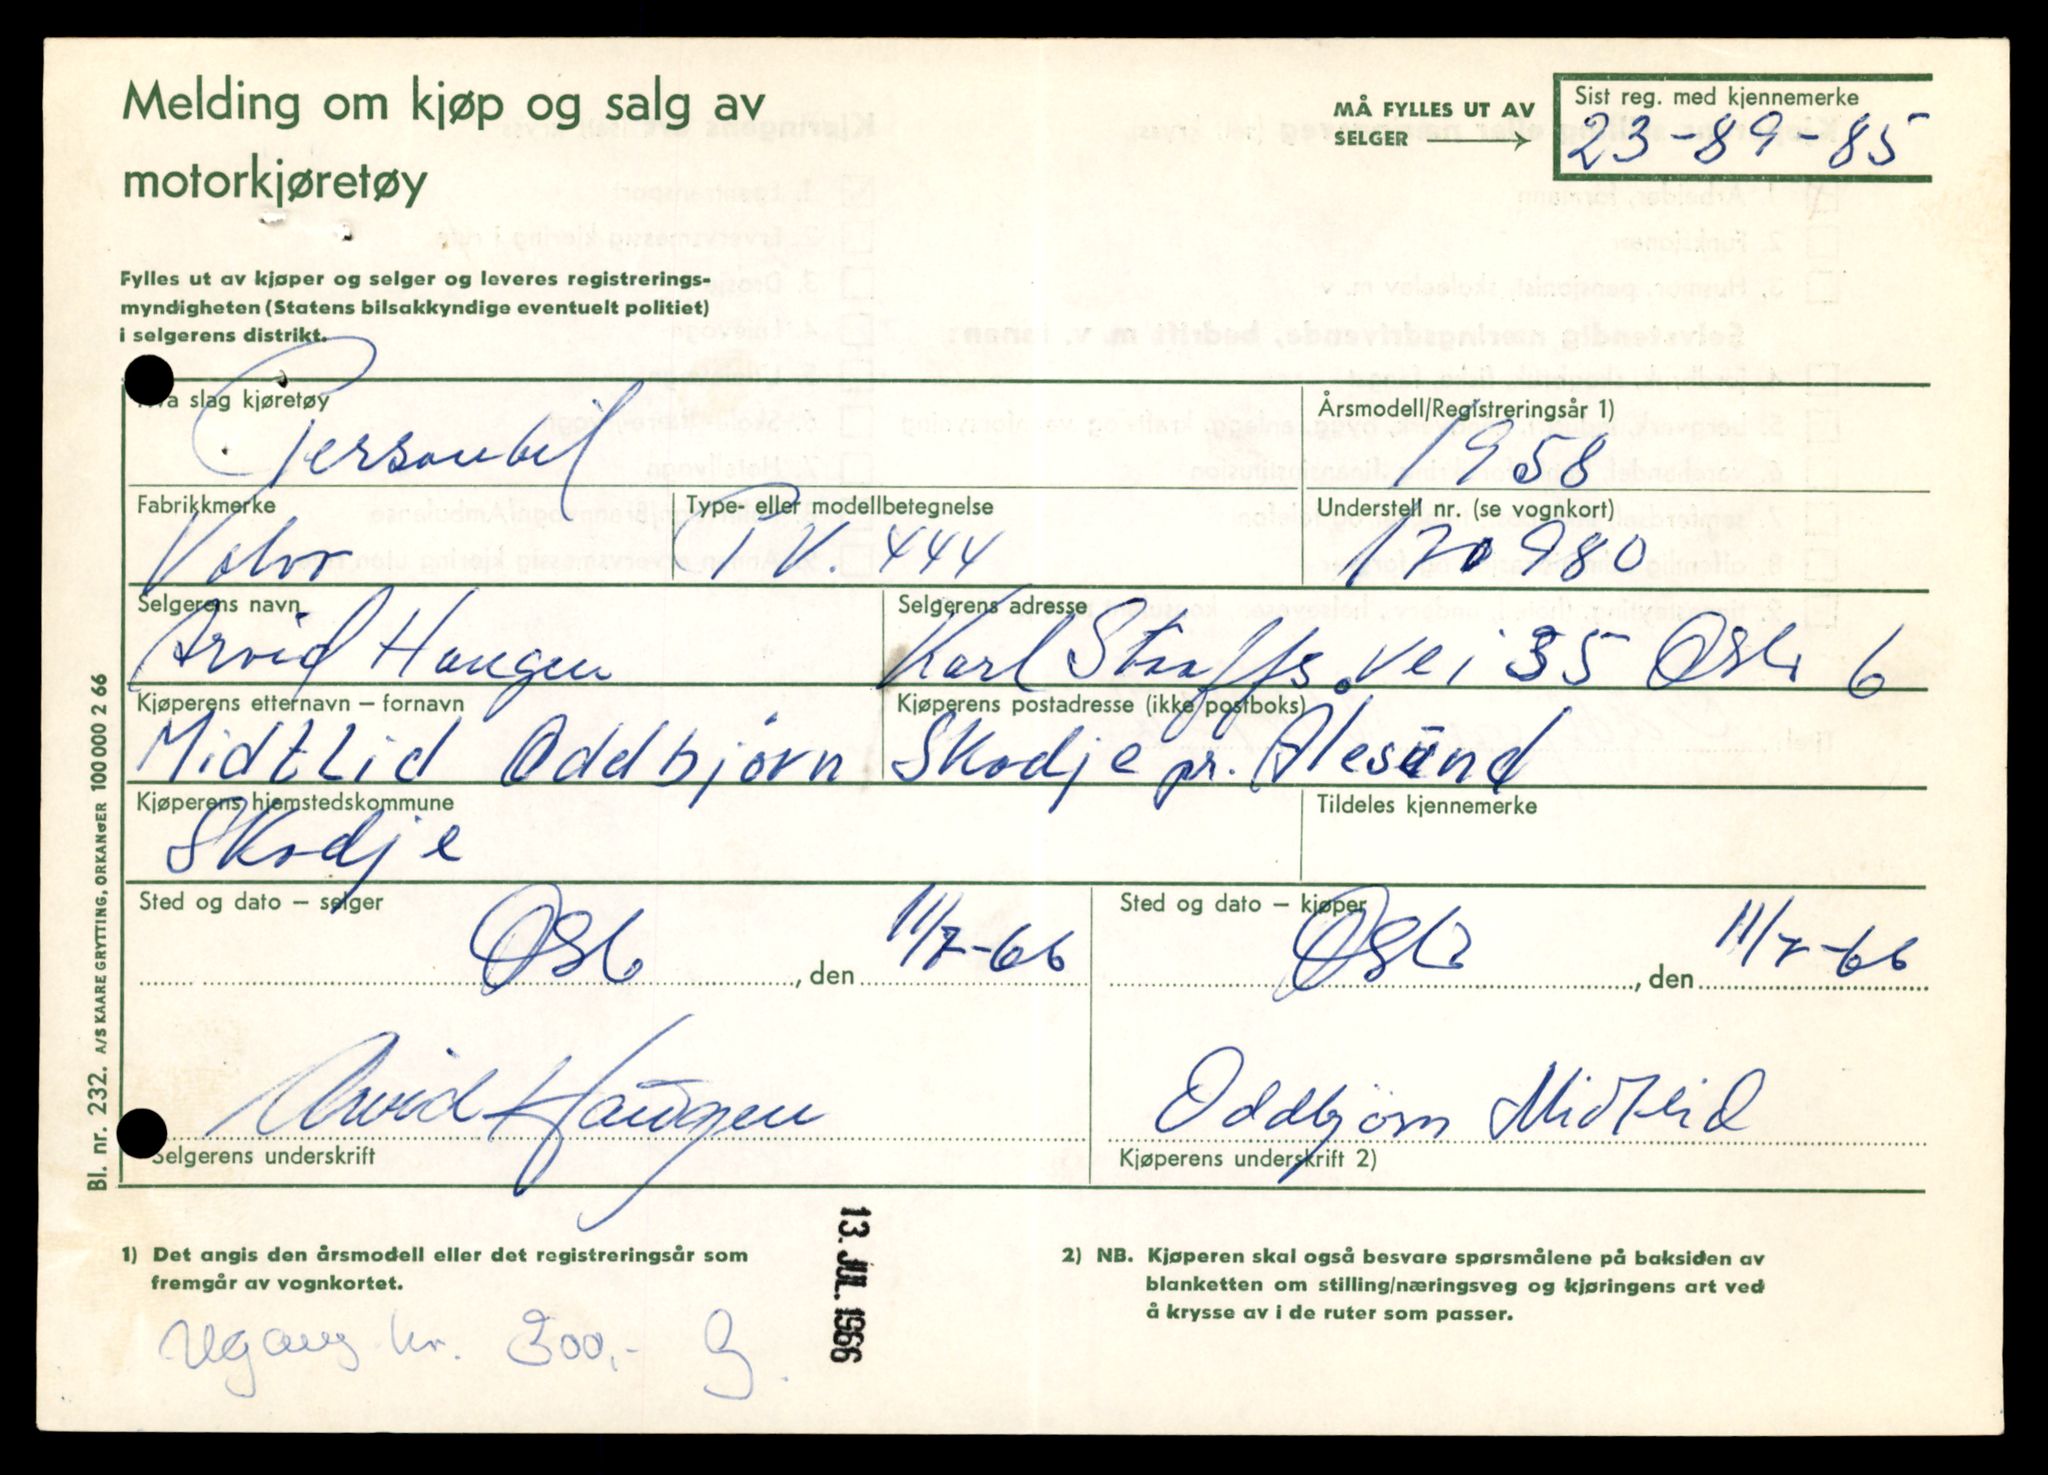 Melding om kjøp og salg av
motorkjøretøy
MÅ FYLLES UT AV
SELGER
Sist reg. med kjennemerke
23-89-85
Fylles ut av kjøper og selger og leveres registrerings-
myndigheten (Statens bilsakkyndige eventuelt politiet)
i selgerens distrikt.
slag kjøretøy
Personbil
Årsmodell/Registreringsår 1)
1958
Fabrikkmerke
Volvo
Type- eller modellbetegnelse
P.V. 444
Understell nr. (se vognkort)
170980
Selgerens navn
Arvid Haugen
Selgerens adresse
Karl Staaffs vei 35 Oslo 6
Kjøperens etternavn – fornavn
Midtlid Oddbjørn
Kjøperens postadresse (ikke postboks)
Skodje pr. Ålesund
Kjøperens hjemstedskommune
Skodje
Tildeles kjennemerke
Sted og dato – selger
Oslo, den 11/7-66
Sted og dato – kjøper
Oslo, den 11/7-66
Arvid Haugen
Selgerens underskrift
Oddbjørn Midtlid
Kjøperens underskrift 2)
Bl. nr. 232. A/S KAARE GRYTTING, ORKANGER 100 000 2 66
1) Det angis den årsmodell eller det registreringsår som
fremgår av vognkortet.
2) NB. Kjøperen skal også besvare spørsmålene på baksiden av
blanketten om stilling/næringsveg og kjøringens art ved
å krysse av i de ruter som passer.
13. JUL. 1966
kr. 300,-